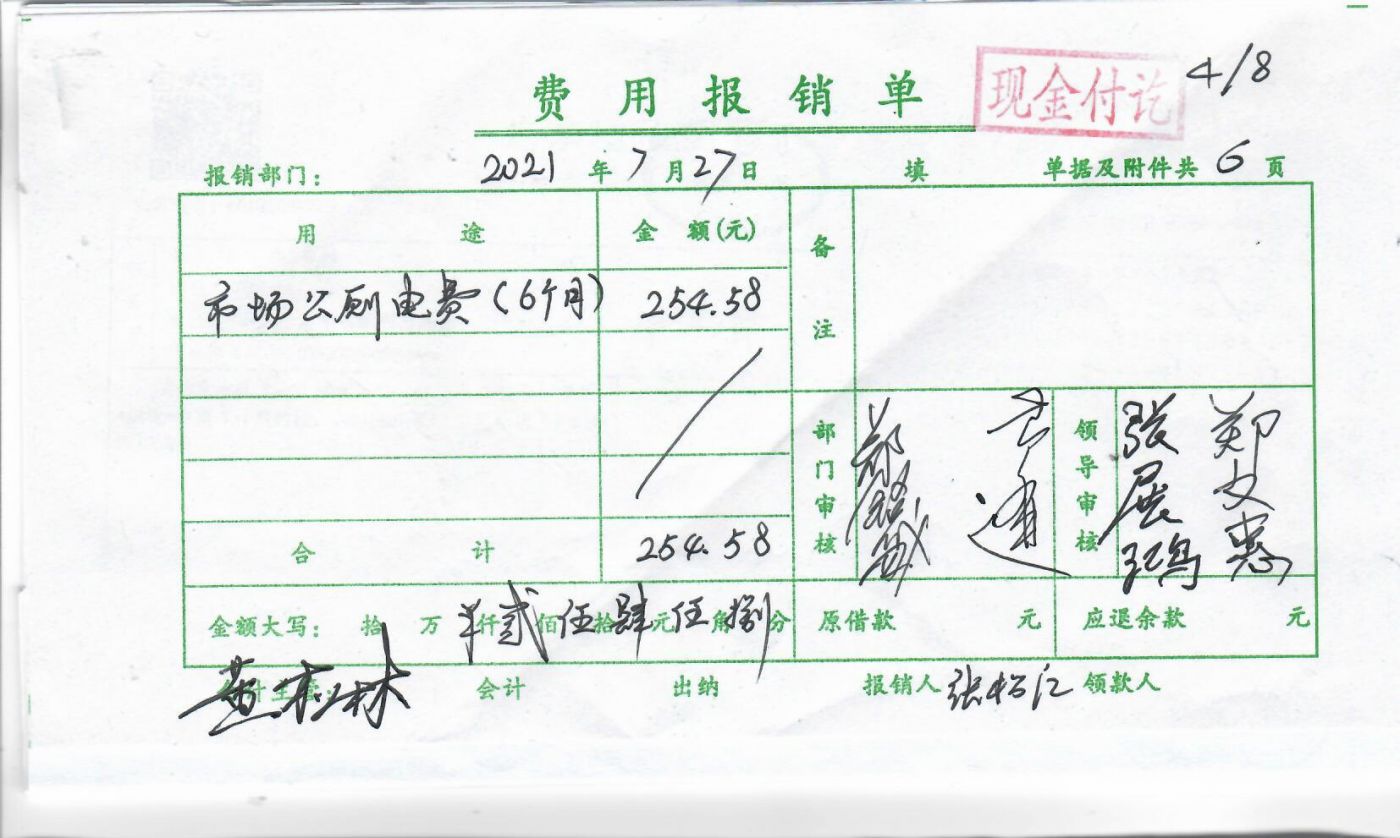 费用报销单 现金付讫 4/8
报销部门： 2021 年 7 月 27 日 填 单据及附件共 6 页
用途 金额(元) 备注
市场公厕电费（6个月） 254.58
部门审核 领导审核 张展鸿 郑文惠
合计 254.58
金额大写： 拾 万 仟 贰 佰 伍 拾 肆 元 伍 角 捌 分 原借款 元 应退余款 元
会计主管： 会计 出纳 报销人 张松江 领款人